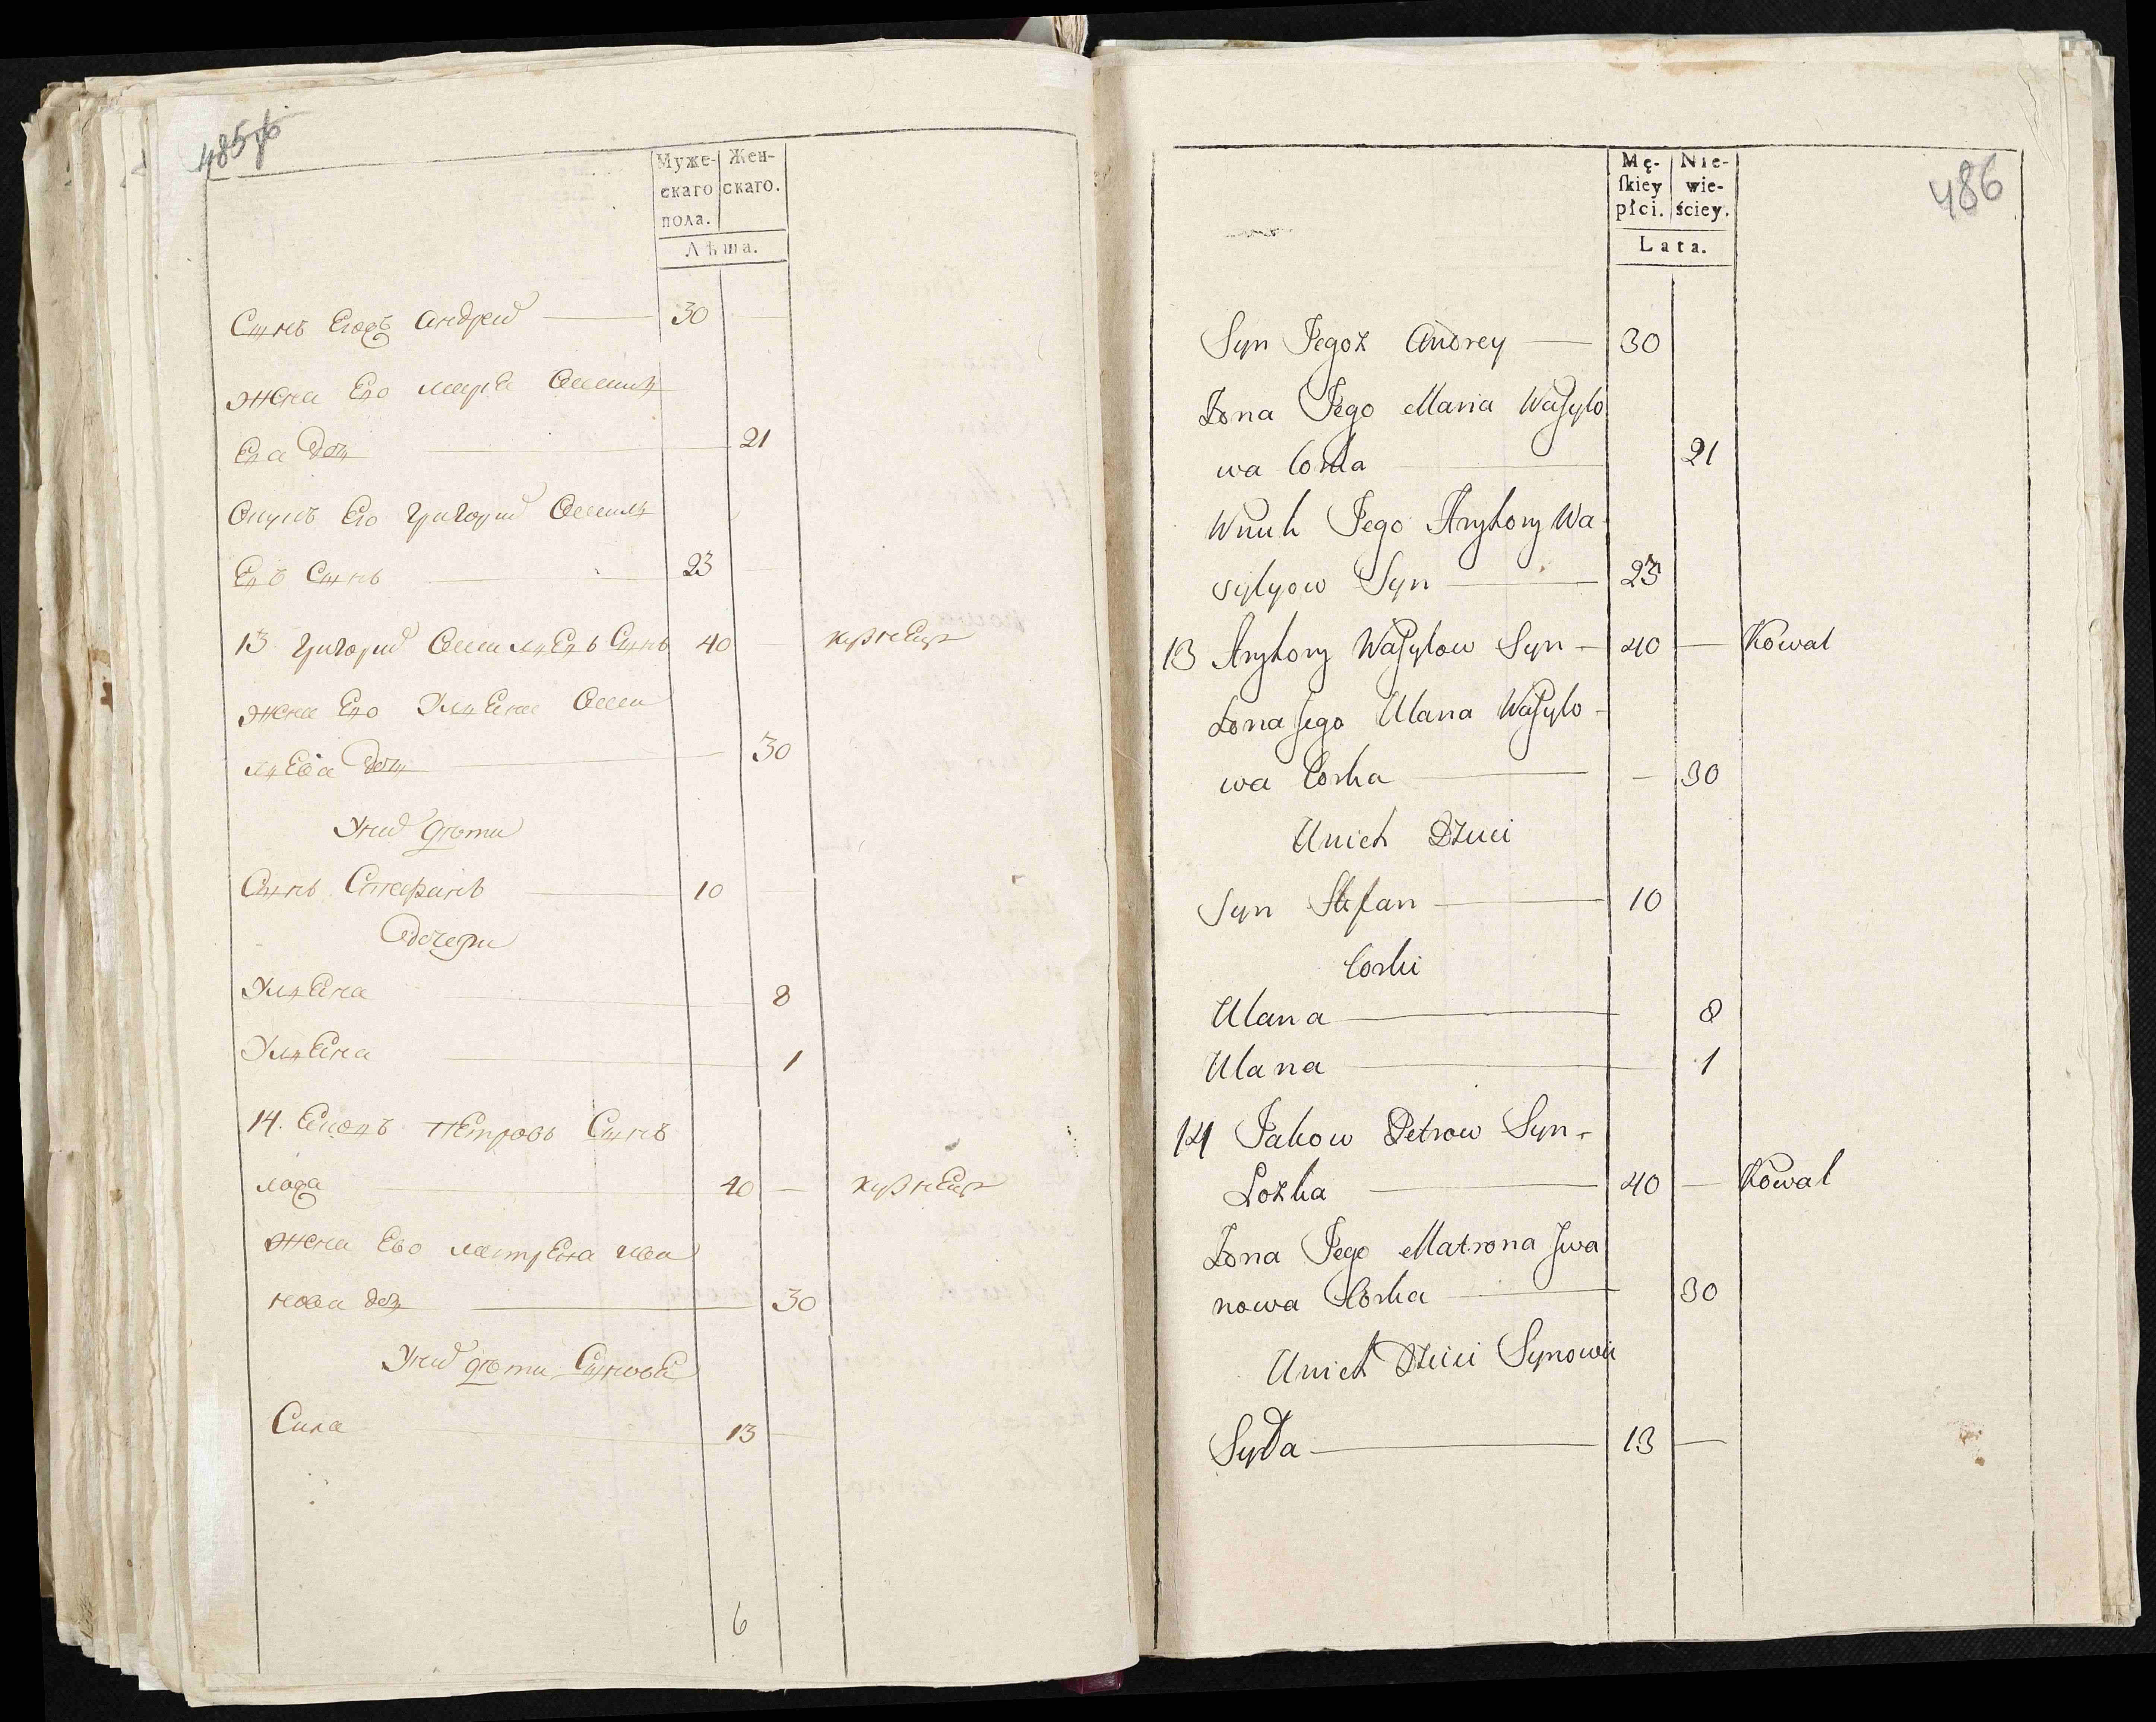 485 об
Муже- Жен-
скаго скаго.
пола.
Лѣта.
Сынъ Егожъ Андрей 30
жена Его марья Васильу
Ева доч 21
Внукъ Его Григорий Василь
Евъ Сынъ 23
13 Григорий Васильевъ Сынъ 40 кузнецъ
жена Его Ульена Васи
льева доч 30
Уних дѣти
Сынъ Стефанъ 10
дочери
Ульена 8
Ульена 1
14. Яковъ Петровъ Сынъ
40 кузнецъ
жена Ево матрена ива
нова доч 30
Уних дѣти Сынове
Сила 13
6
486
Mę- Nie-
ſkiey wie-
płci. ściey.
Lata.
Syn Jegoż Andrey 30
Żona Jego Maria Wasylo
wa Corka 21
Wnuk Jego Hryhory Wa
sylyow Syn 23
13 Hryhory Wasylow Syn 40 Kowal
Żona Jego Ulana Wasylo-
wa Corka 30
Unich Dzieci
Syn Stefan 10
Corki
Ulana 8
Ulana 1
14 Jakow Petrow Syn
Lozka 40 Kowal
Żona Jego Matrona Jwa
nowa Corka 30
Unich Dzieci Synowie
Syła 13